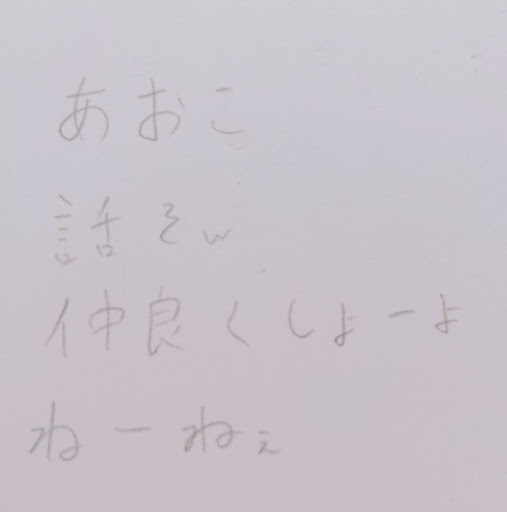 あおこ
話そw
仲良くしよーよ
ねーねぇ